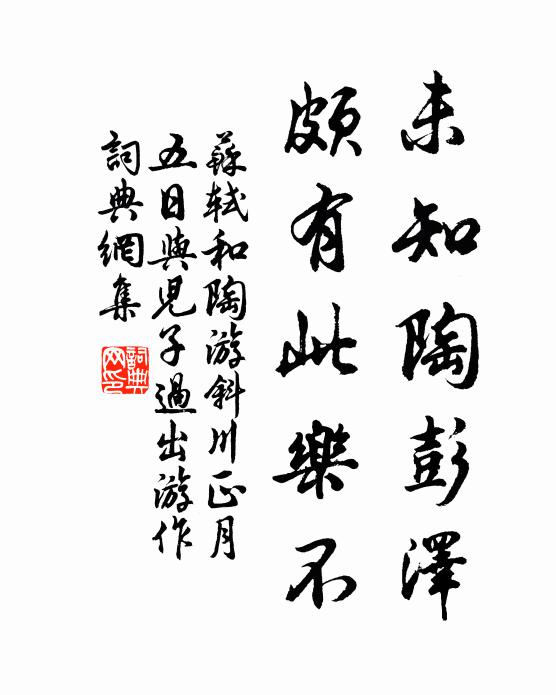 未知陶彭澤
頗有此樂不
蘇軾和陶游斜川正月
五日與兒子過出游作
詞典網集
詞典
网印